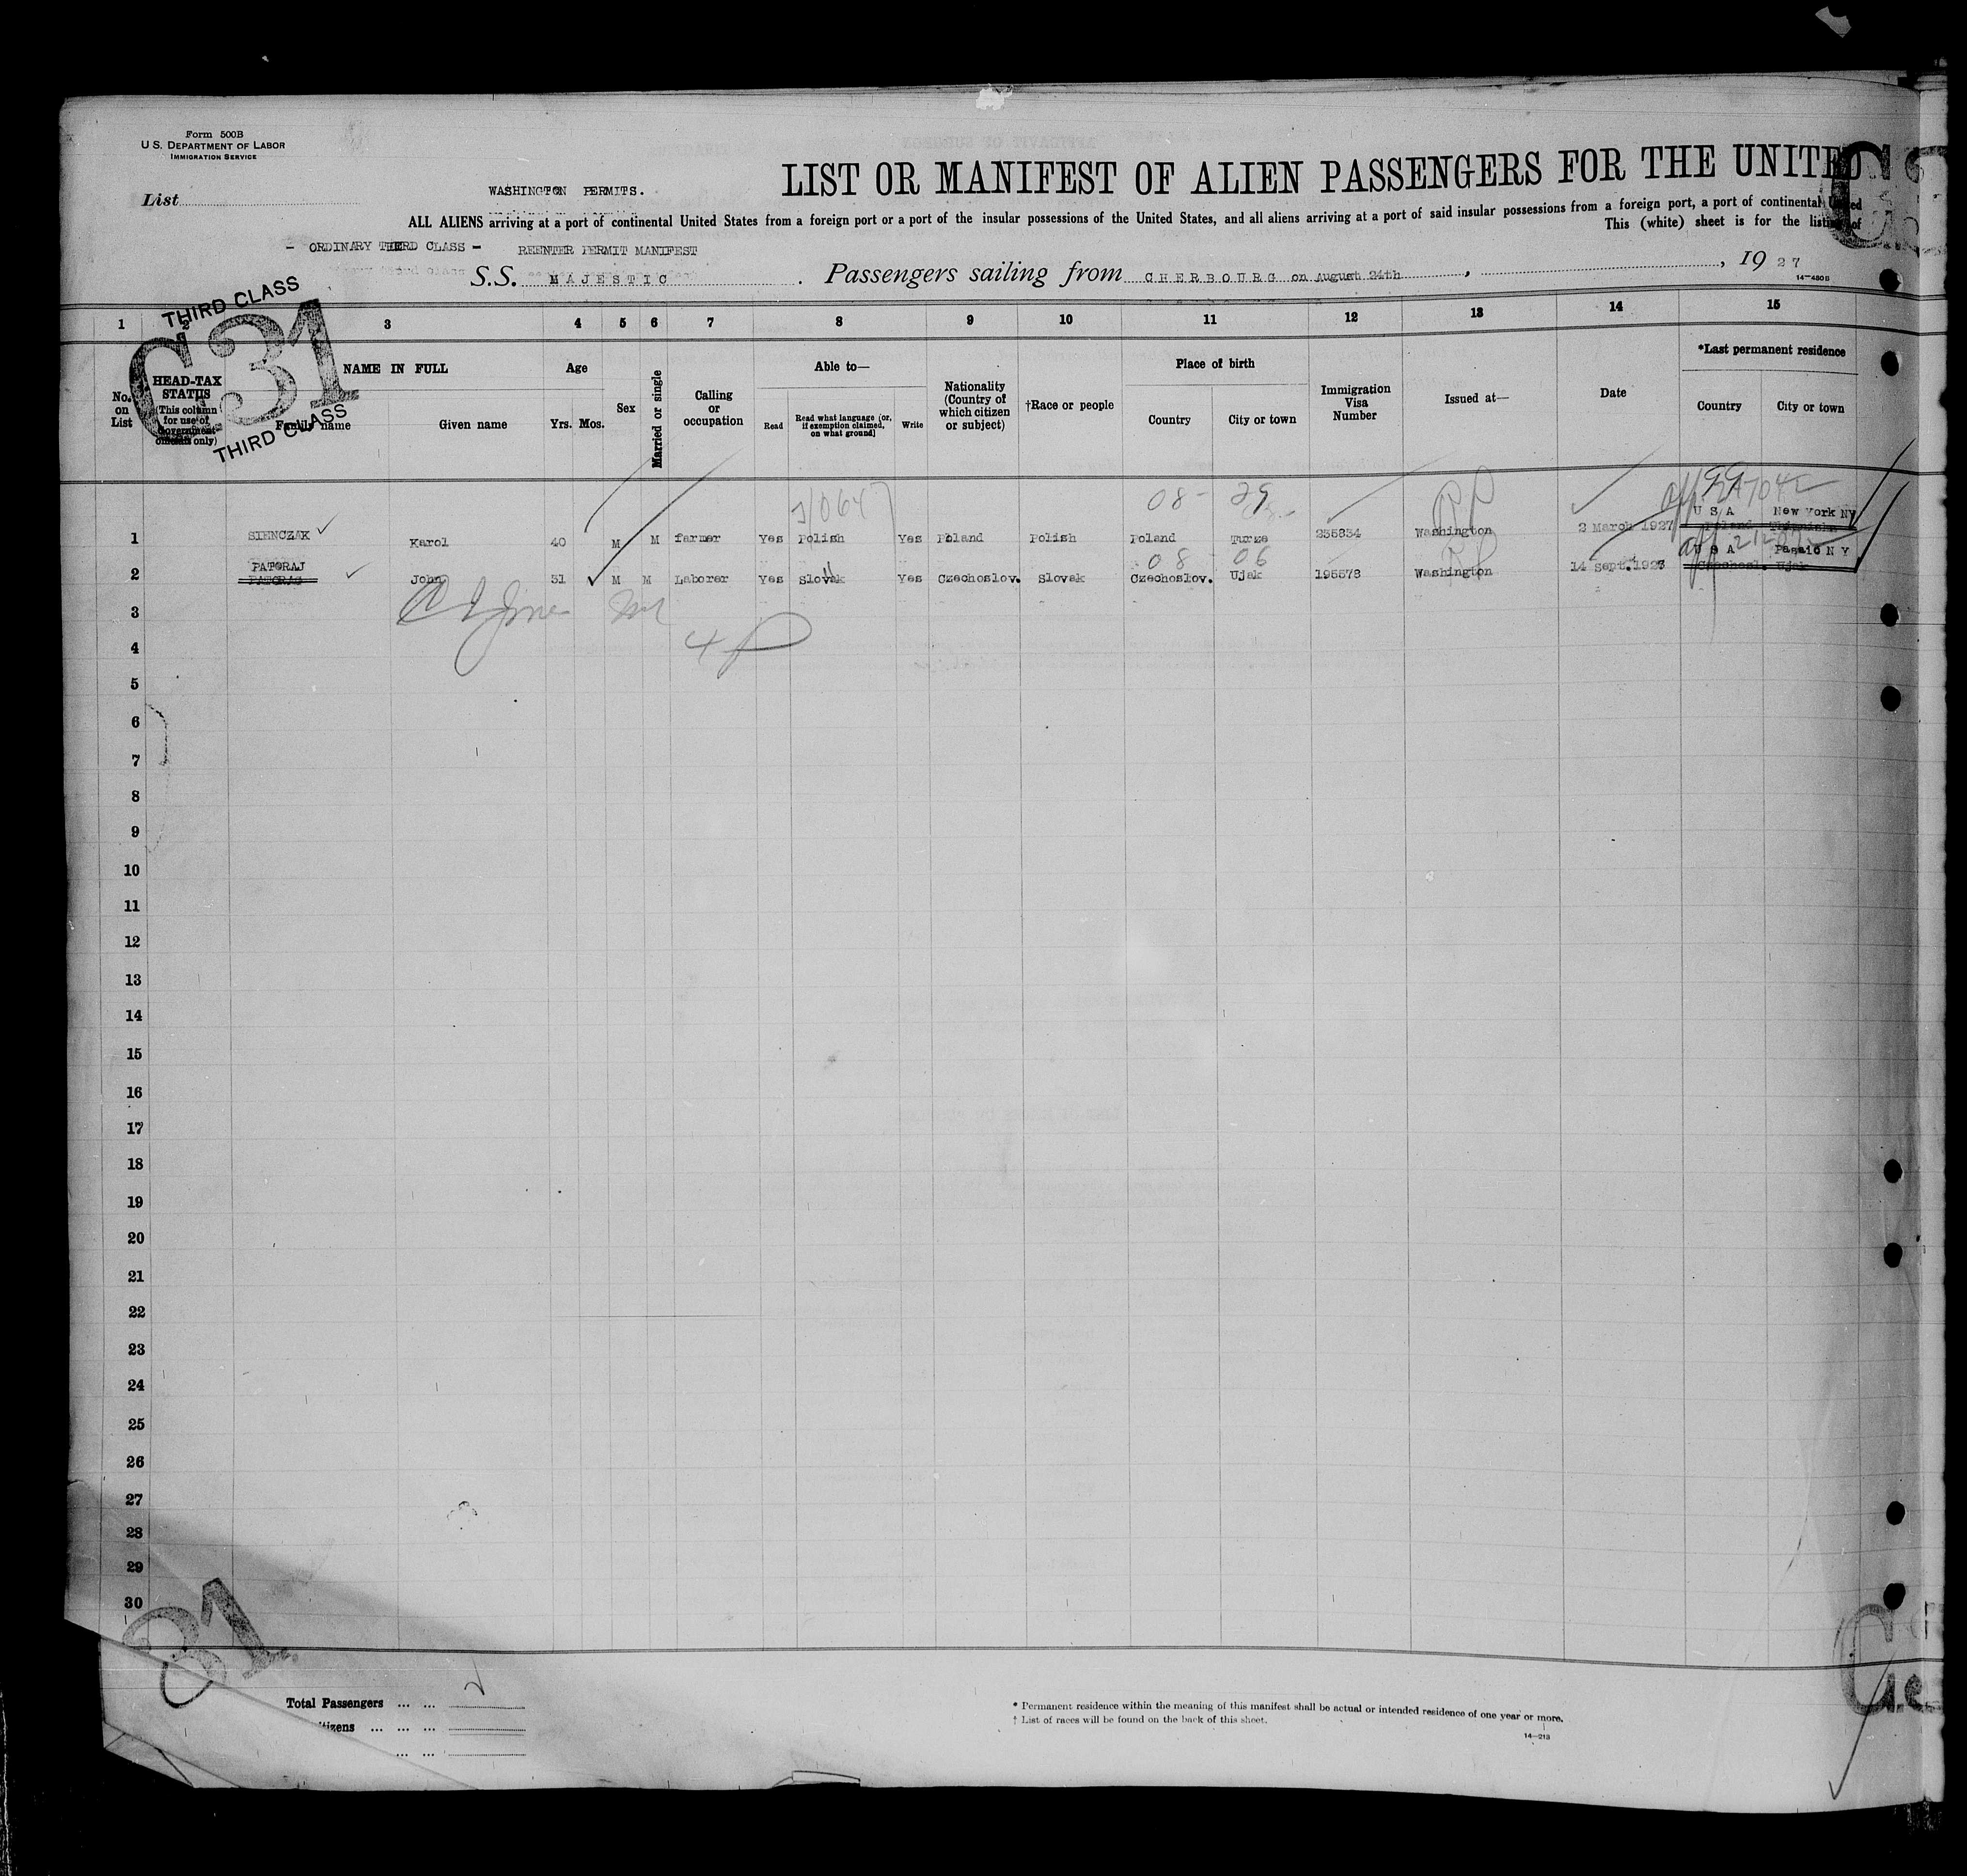 Form 500B
U.S. DEPARTMENT OF LABOR
IMMIGRATION SERVICE
List
WASHINGTON PERMITS.
LIST OR MANIFEST OF ALIEN PASSENGERS FOR THE UNITED
ALL ALIENS arriving at a port of continental United States from a foreign port or a port of the insular possessions of the United States, and all aliens arriving at a port of said insular possessions from a foreign port, a port of continental United
This (white) sheet is for the listing of
- ORDINARY THIRD CLASS - REENTER PERMIT MANIFEST
S.S. MAJESTIC. Passengers sailing from CHERBOURG on August 24th, , 1927
14-480B
THIRD CLASS
C31
THIRD CLASS
1 2 3 4 5 6 7 8 9 10 11 12 13 14 15
No. on List
HEAD-TAX STATUS (This column for use of Government officials only)
NAME IN FULL
Family name Given name
Age
Yrs. Mos.
Sex
Married or single
Calling or occupation
Able to—
Read Read what language (or, if exemption claimed, on what ground) Write
Nationality (Country of which citizen or subject)
†Race or people
Place of birth
Country City or town
Immigration Visa Number
Issued at—
Date
*Last permanent residence
Country City or town
08- 29
U S A New York NY
1 SIENCZAK Karol 40 M M farmer Yes Polish Yes Poland Polish Poland Turze 235834 Washington 2 March 1927 Poland
08 - 06
PATORAJ U S A Passaic N Y
2 PATORAG John 31 M M Laborer Yes Slovak Yes Czechoslov. Slovak Czechoslov. Ujak 195578 Washington 14 Sept. 1923 Czechosl. Ujak
3
4
5
6
7
8
9
10
11
12
13
14
15
16
17
18
19
20
21
22
23
24
25
26
27
28
29
30
31
Total Passengers ... ...
itizens ... ... ...
... ...
* Permanent residence within the meaning of this manifest shall be actual or intended residence of one year or more.
† List of races will be found on the back of this sheet.
14-213